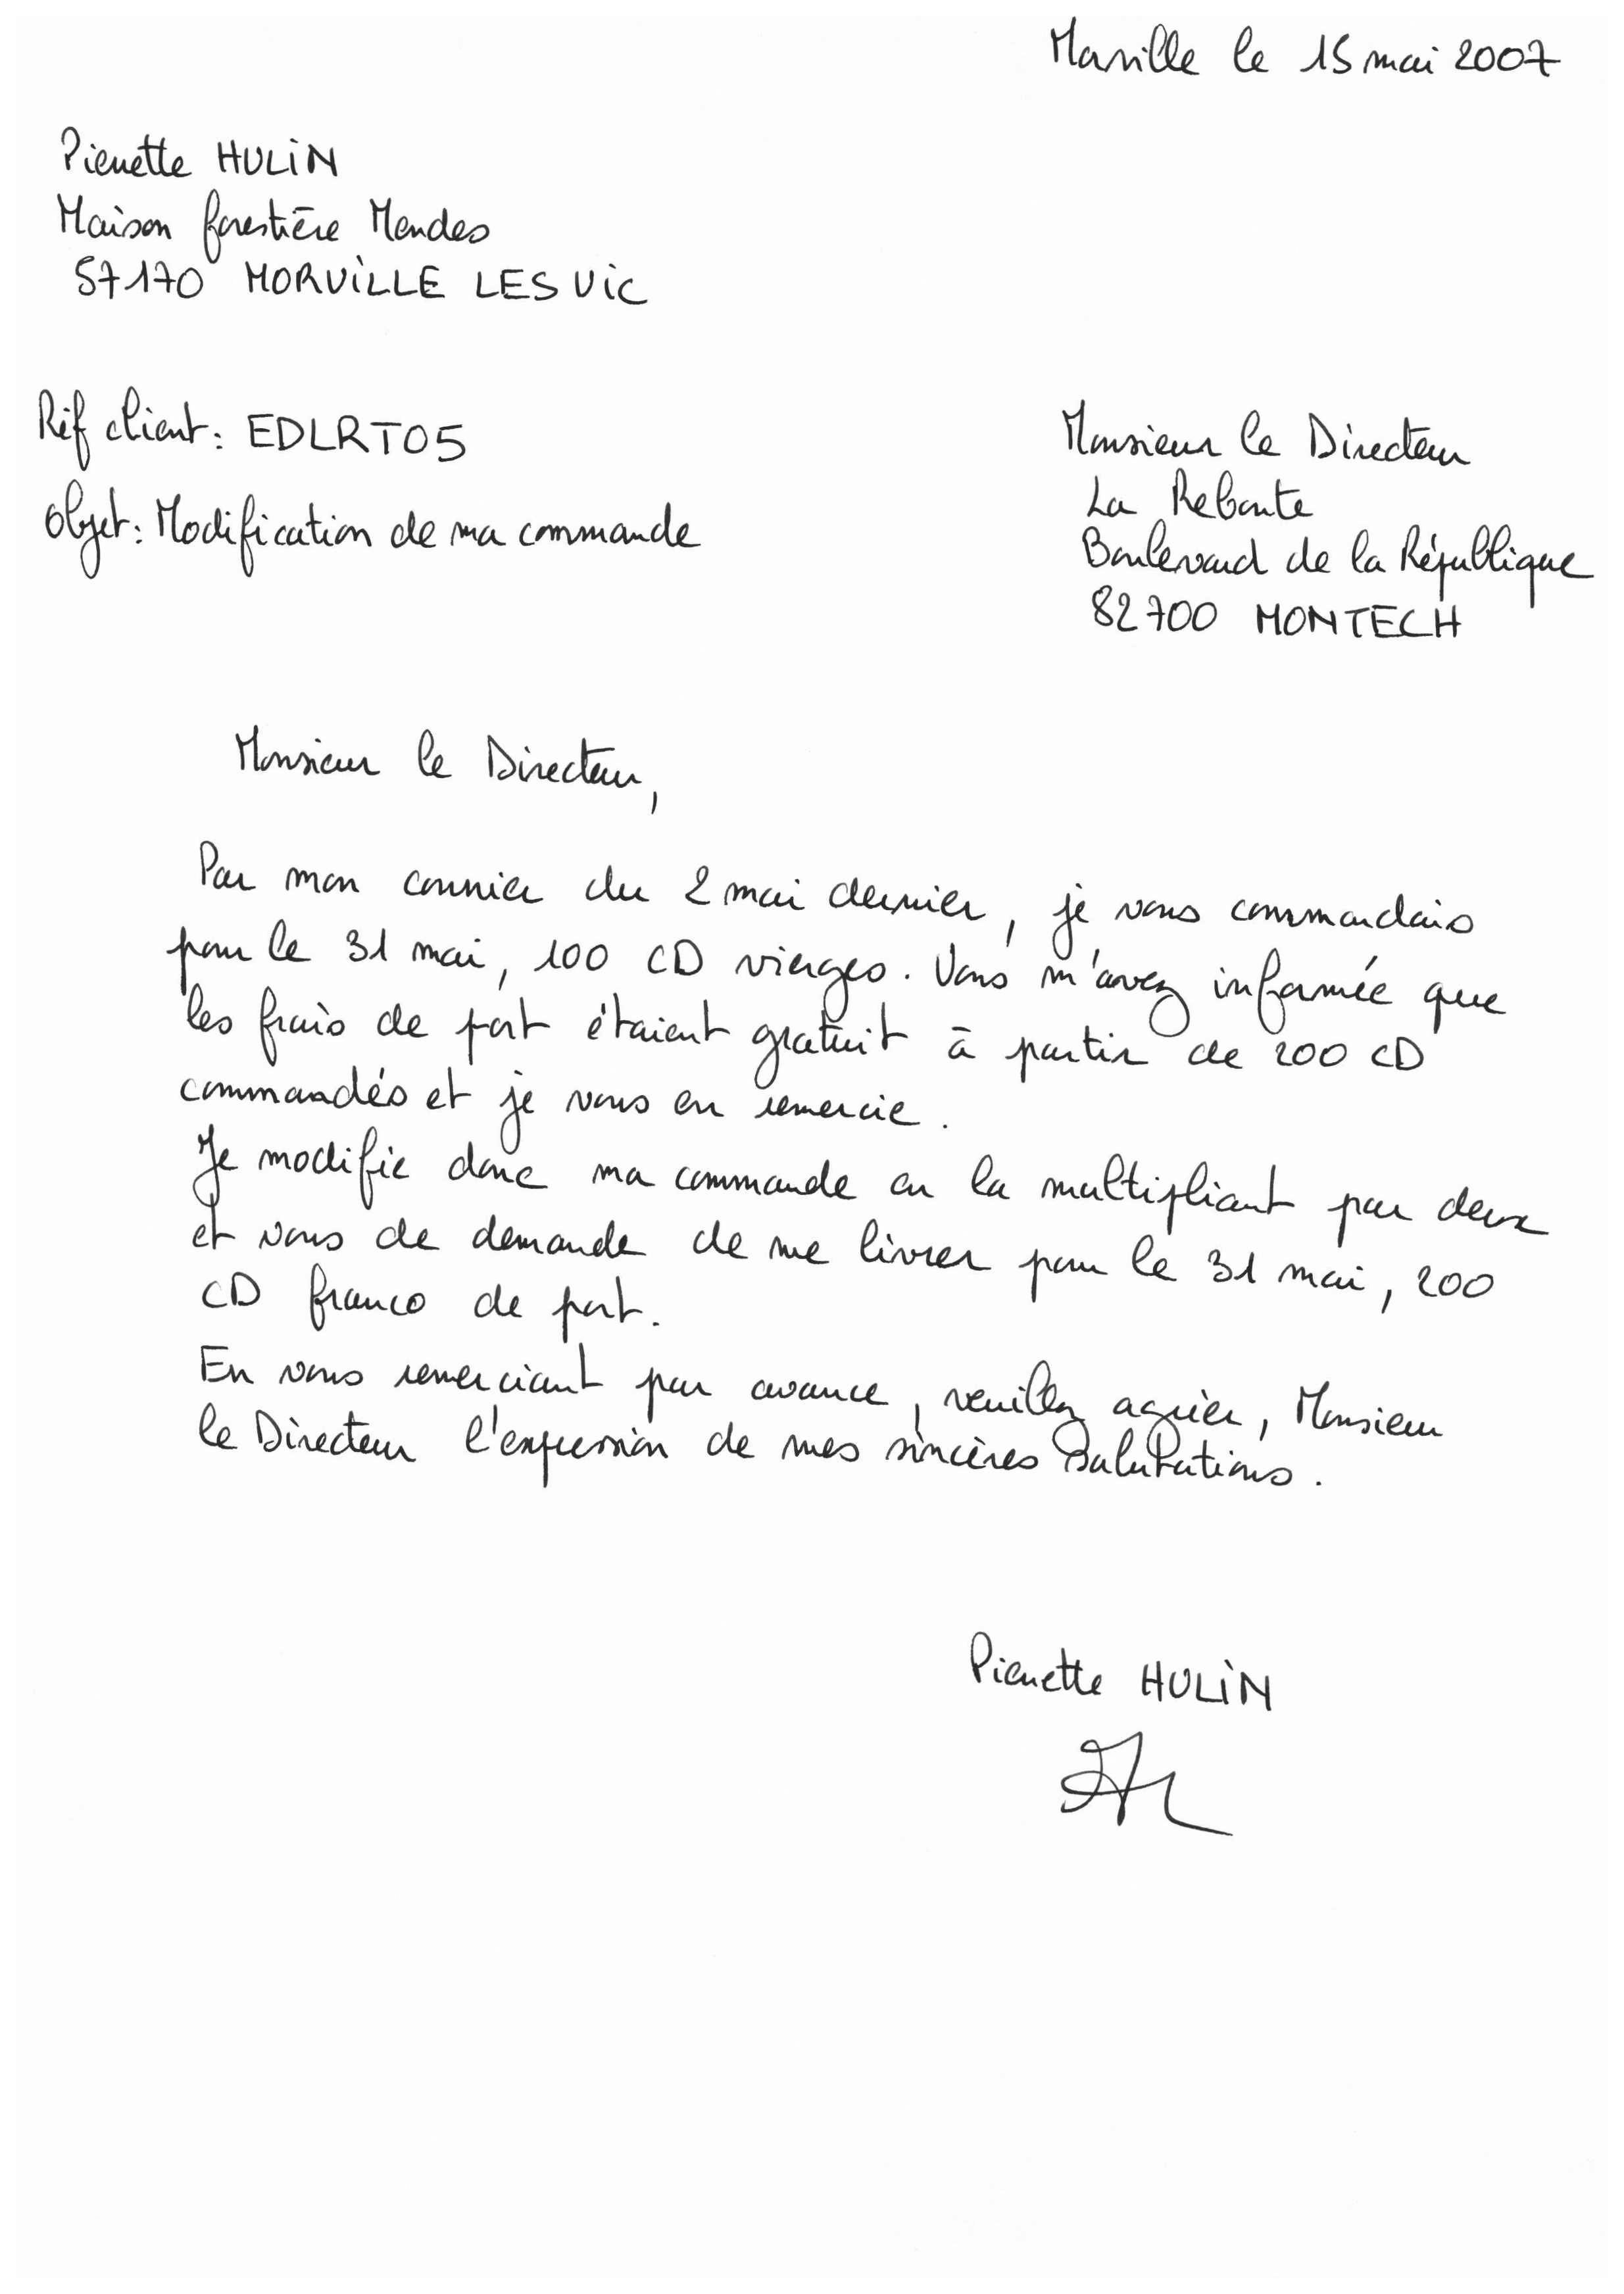 Morville le 15 mai 2007
Pierrette HULIN
Maison forestière Mendes
57170 MORVILLE LES VIC
Réf client: EDLRT05
Objet: Modification de ma commande
Monsieur le Directeur
La Reboute
Boulevard de la République
82700 MONTECH
Monsieur le Directeur,
Par mon courrier du 2 mai dernier, je vous commandais
pour le 31 mai, 100 CD vierges. Vous m'avez informée que
les frais de port étaient gratuit à partir de 200 CD
commandés et je vous en remercie.
Je modifie donc ma commande en la multipliant par deux
et vous de demande de me livrer pour le 31 mai, 200
CD franco de port.
En vous remerciant par avance, veuillez agréer, Monsieur
le Directeur l'expression de mes sincères salutations.
Pierrette HULIN